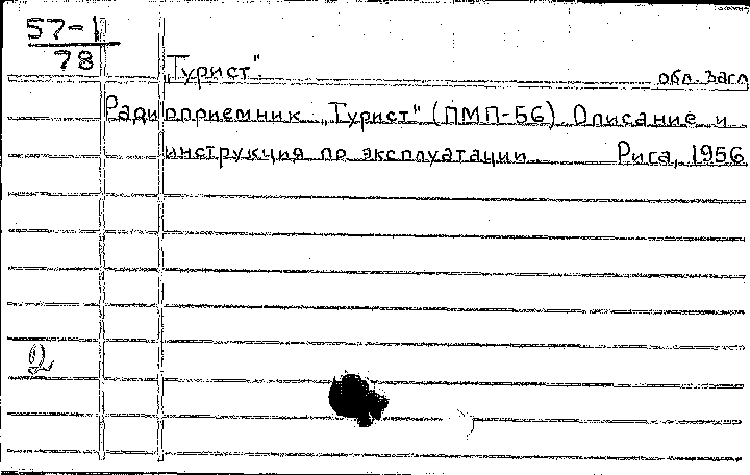 57-1
78
„Турист".
обл. загл
Радиоприемник „Турист" (ПМП-56). Описание и
инструкция по эксплуатации. Рига, 1956
2